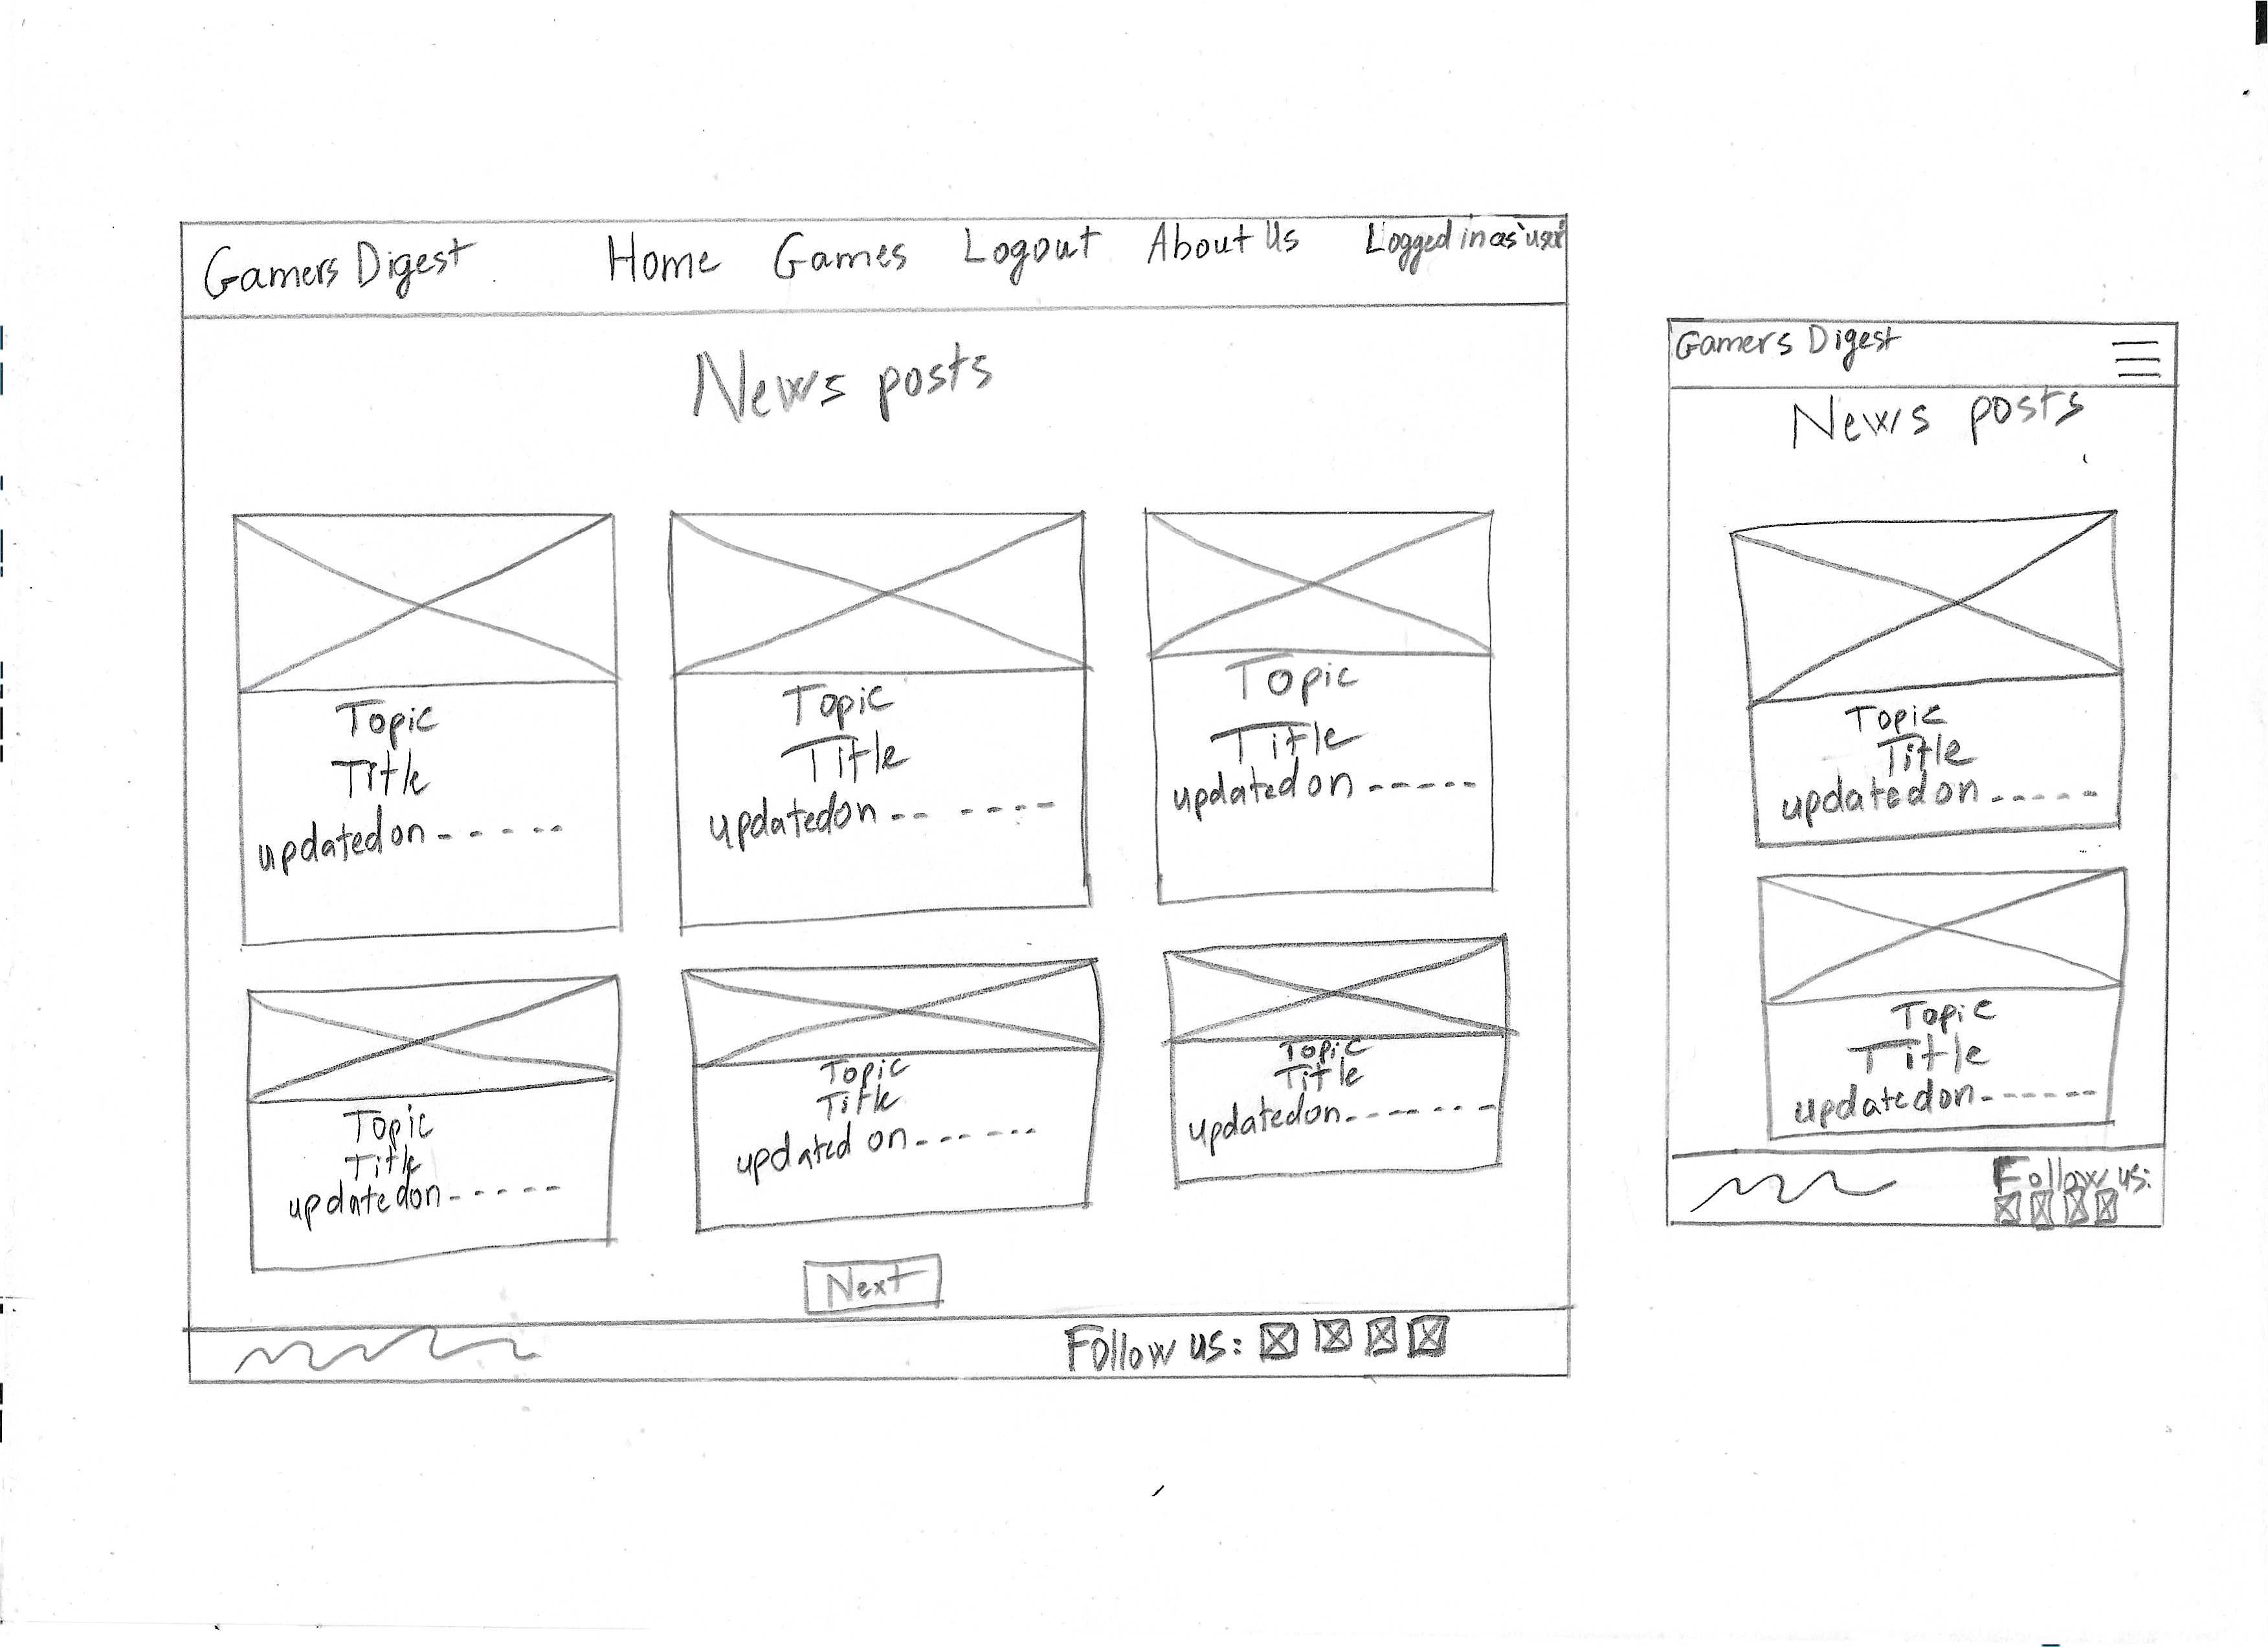 Gamers Digest Home Games Logout About Us Logged in as 'user'
News posts
Topic
Title
updated on - - - - -
Topic
Title
updated on - - - - - -
Topic
Title
updated on - - - - -
Topic
Title
updated on - - - - -
Topic
Title
updated on - - - - - -
Topic
Title
updated on - - - - - - -
Next
Follow us:
Gamers Digest
News posts
Topic
Title
updated on - - - - -
Topic
Title
updated on - - - - - -
Follow us: